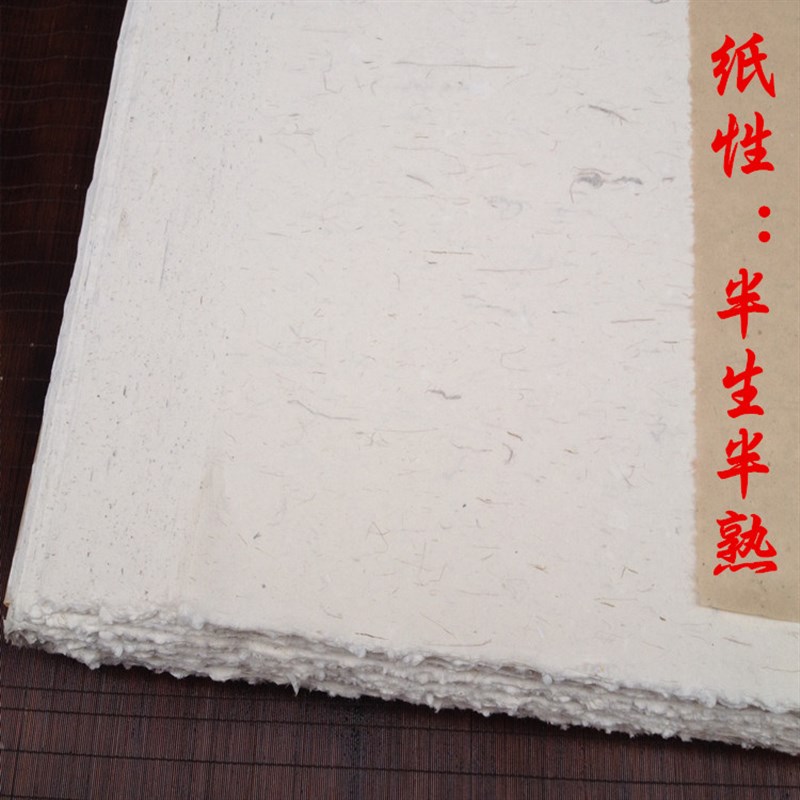 纸性：半生半熟